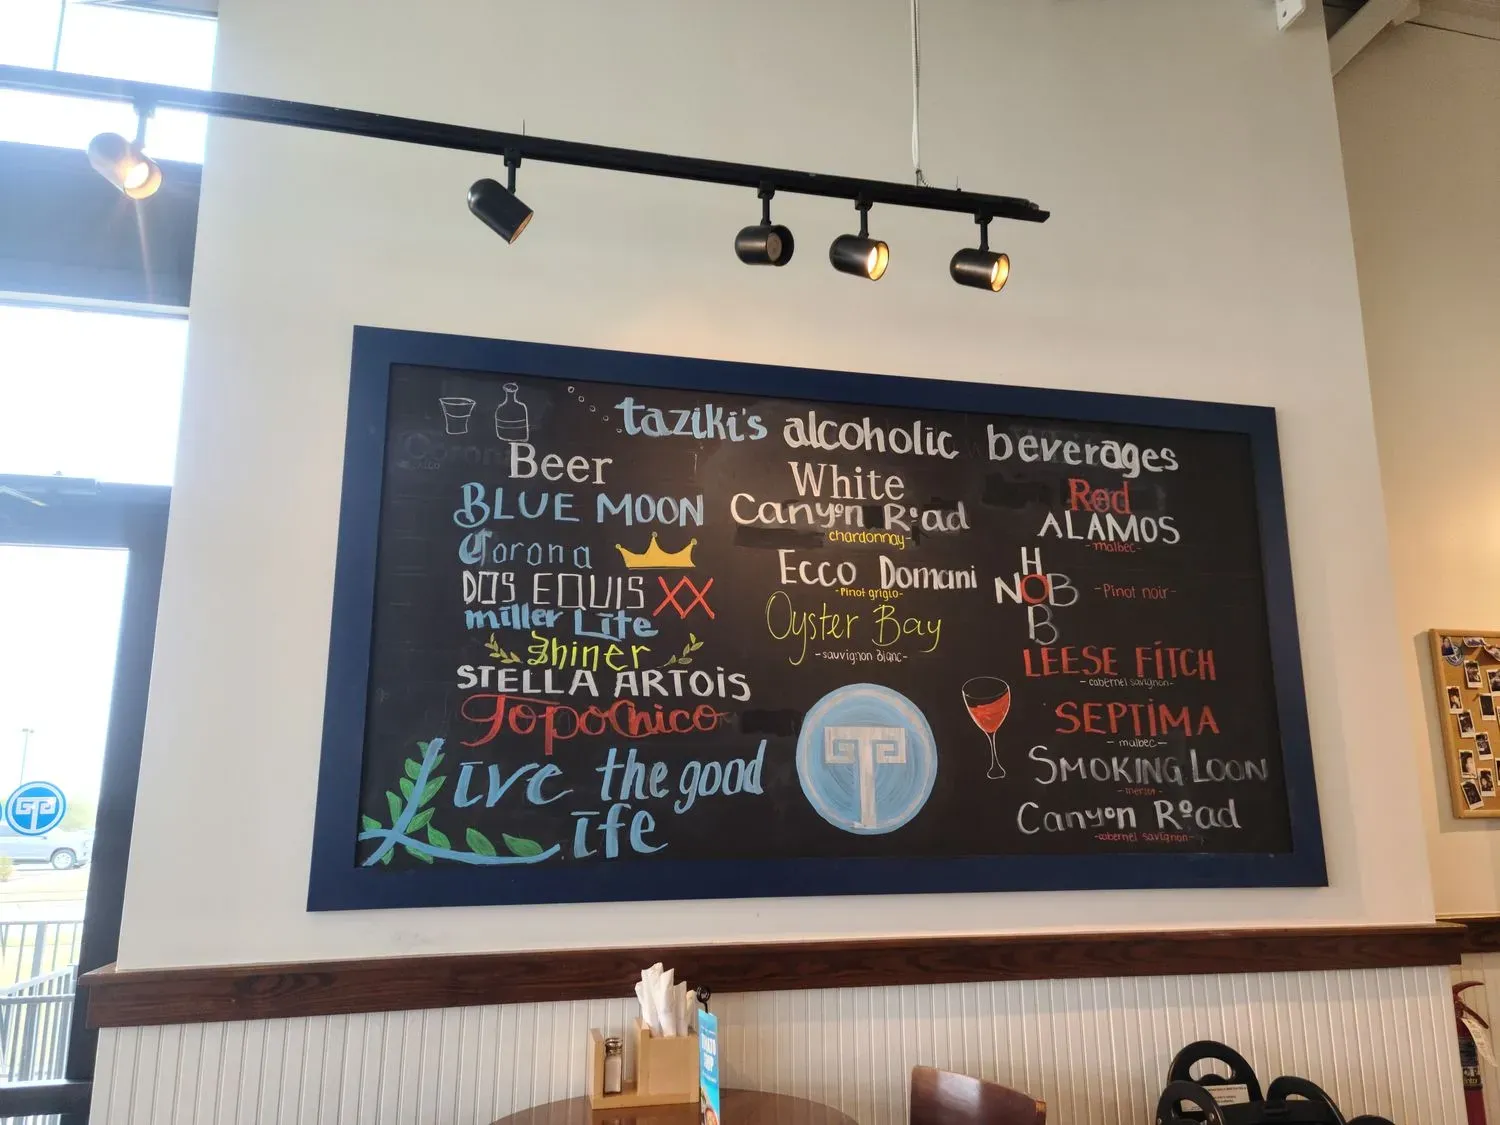 taziki's alcoholic beverages
Beer
BLUE MOON
Corona
DOS EQUIS XX
miller Lite
Shiner
STELLA ARTOIS
TopoChico
Live the good
life
White
Canyon Road
-chardonnay-
Ecco Domani
-Pinot grigio-
Oyster Bay
-sauvignon Blanc-
T
Red
ALAMOS
-malbec-
HOB
NOB
-Pinot noir-
LEESE FITCH
-cabernel savignon-
SEPTIMA
-malbec-
SMOKING LOON
-merlot-
Canyon Road
-cabernel savignon-